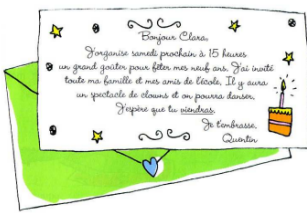 Bonjour Clara,
J'organise samedi prochain à 15 heures
un grand goûter pour fêter mes neuf ans. J'ai invité
toute ma famille et mes amis de l'école. Il y aura
un spectacle de clowns et on pourra danser.
J'espère que tu viendras.
Je t'embrasse,
Quentin